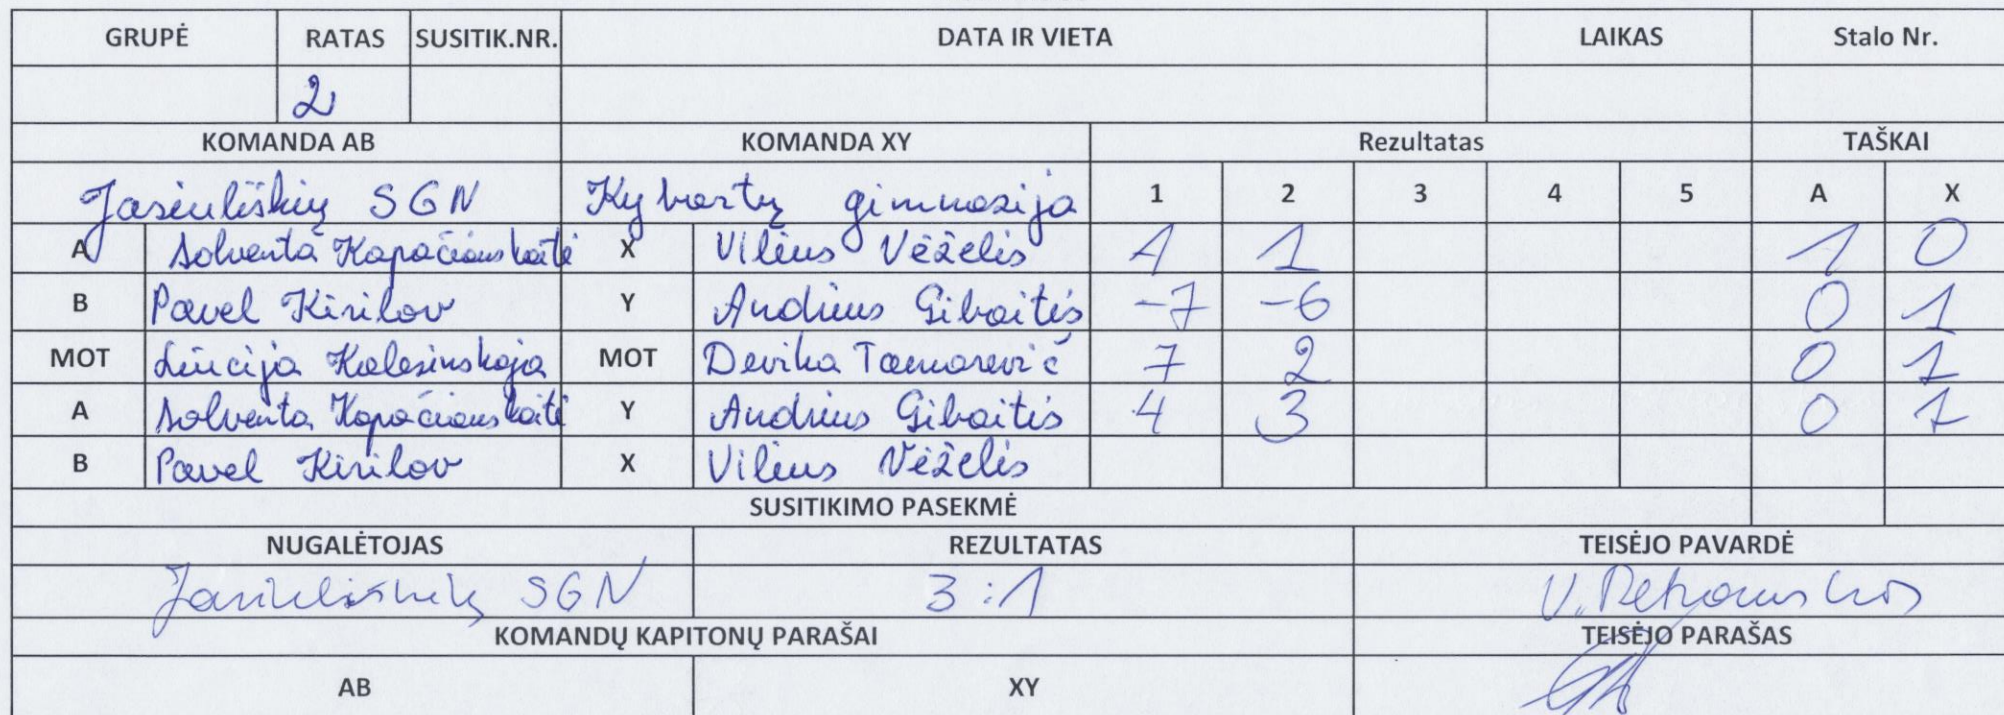 GRUPĖ RATAS SUSITIK.NR. DATA IR VIETA LAIKAS Stalo Nr.
2
KOMANDA AB KOMANDA XY Rezultatas TAŠKAI
Jasiuliškių SGN Kybartų gimnazija 1 2 3 4 5 A X
A Solventa Kapačiauskaitė X Vilius Vėželis 1 1 1 0
B Pavel Kirilov Y Andrius Gibaitis -7 -6 0 1
MOT Liucija Kalesinskaja MOT Devika Tamarevič 7 2 0 1
A Solventa Kapačiauskaitė Y Andrius Gibaitis 4 3 0 1
B Pavel Kirilov X Vilius Vėželis
SUSITIKIMO PASEKMĖ
NUGALĖTOJAS REZULTATAS TEISĖJO PAVARDĖ
Jasiuliškių SGN 3:1 V. Petrauskas
KOMANDŲ KAPITONŲ PARAŠAI TEISĖJO PARAŠAS
AB XY